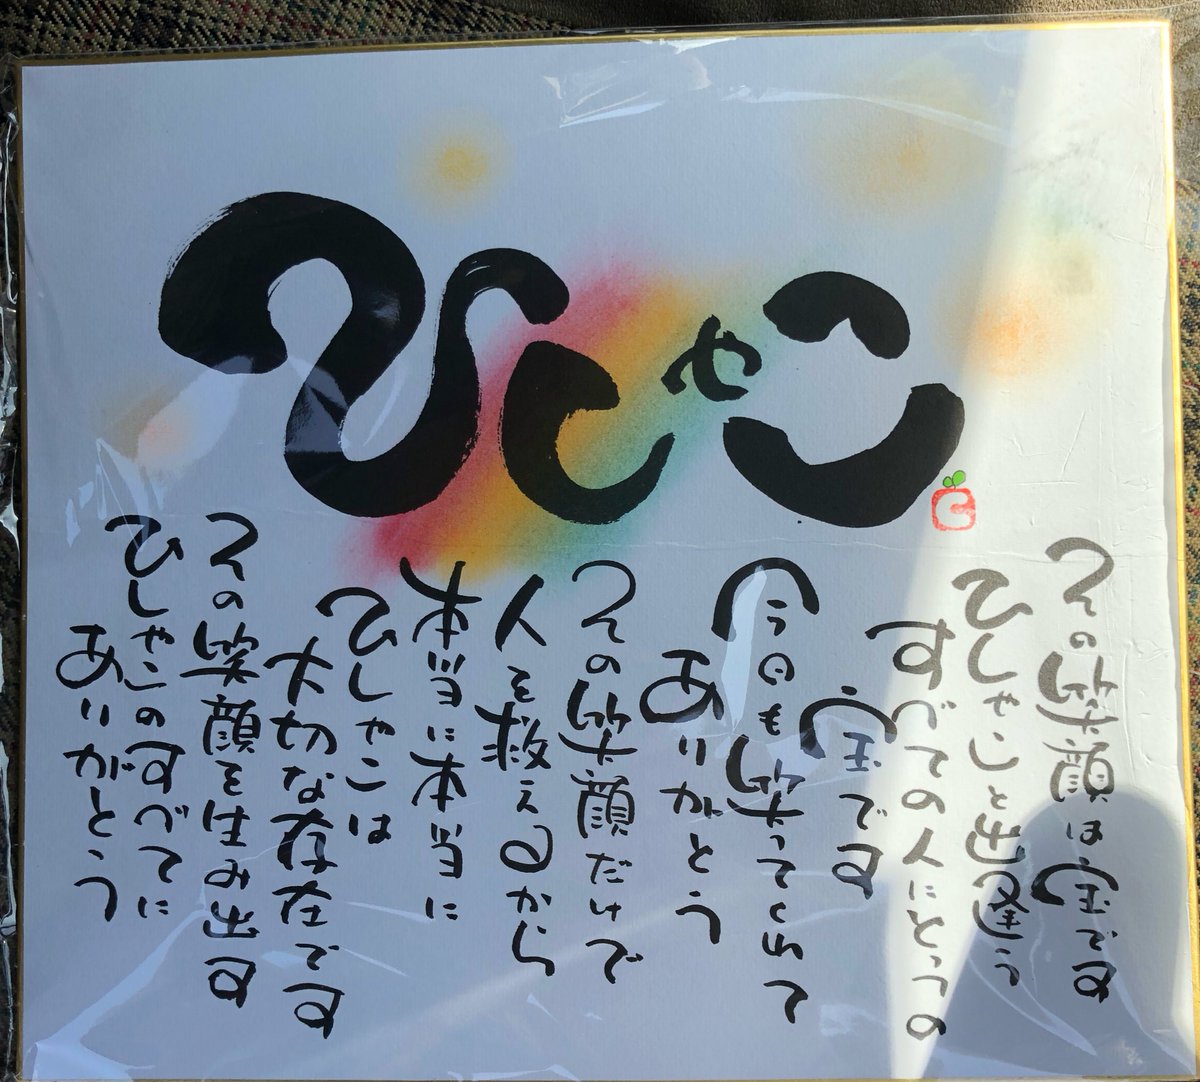 ひしゃこ
その笑顔は宝です
ひしゃこと出逢う
すべての人にとっての
宝です
今日も笑ってくれて
ありがとう
その笑顔だけで
人を救えるから
本当に本当に
ひしゃこは
大切な存在です
その笑顔を生み出す
ひしゃこのすべてに
ありがとう